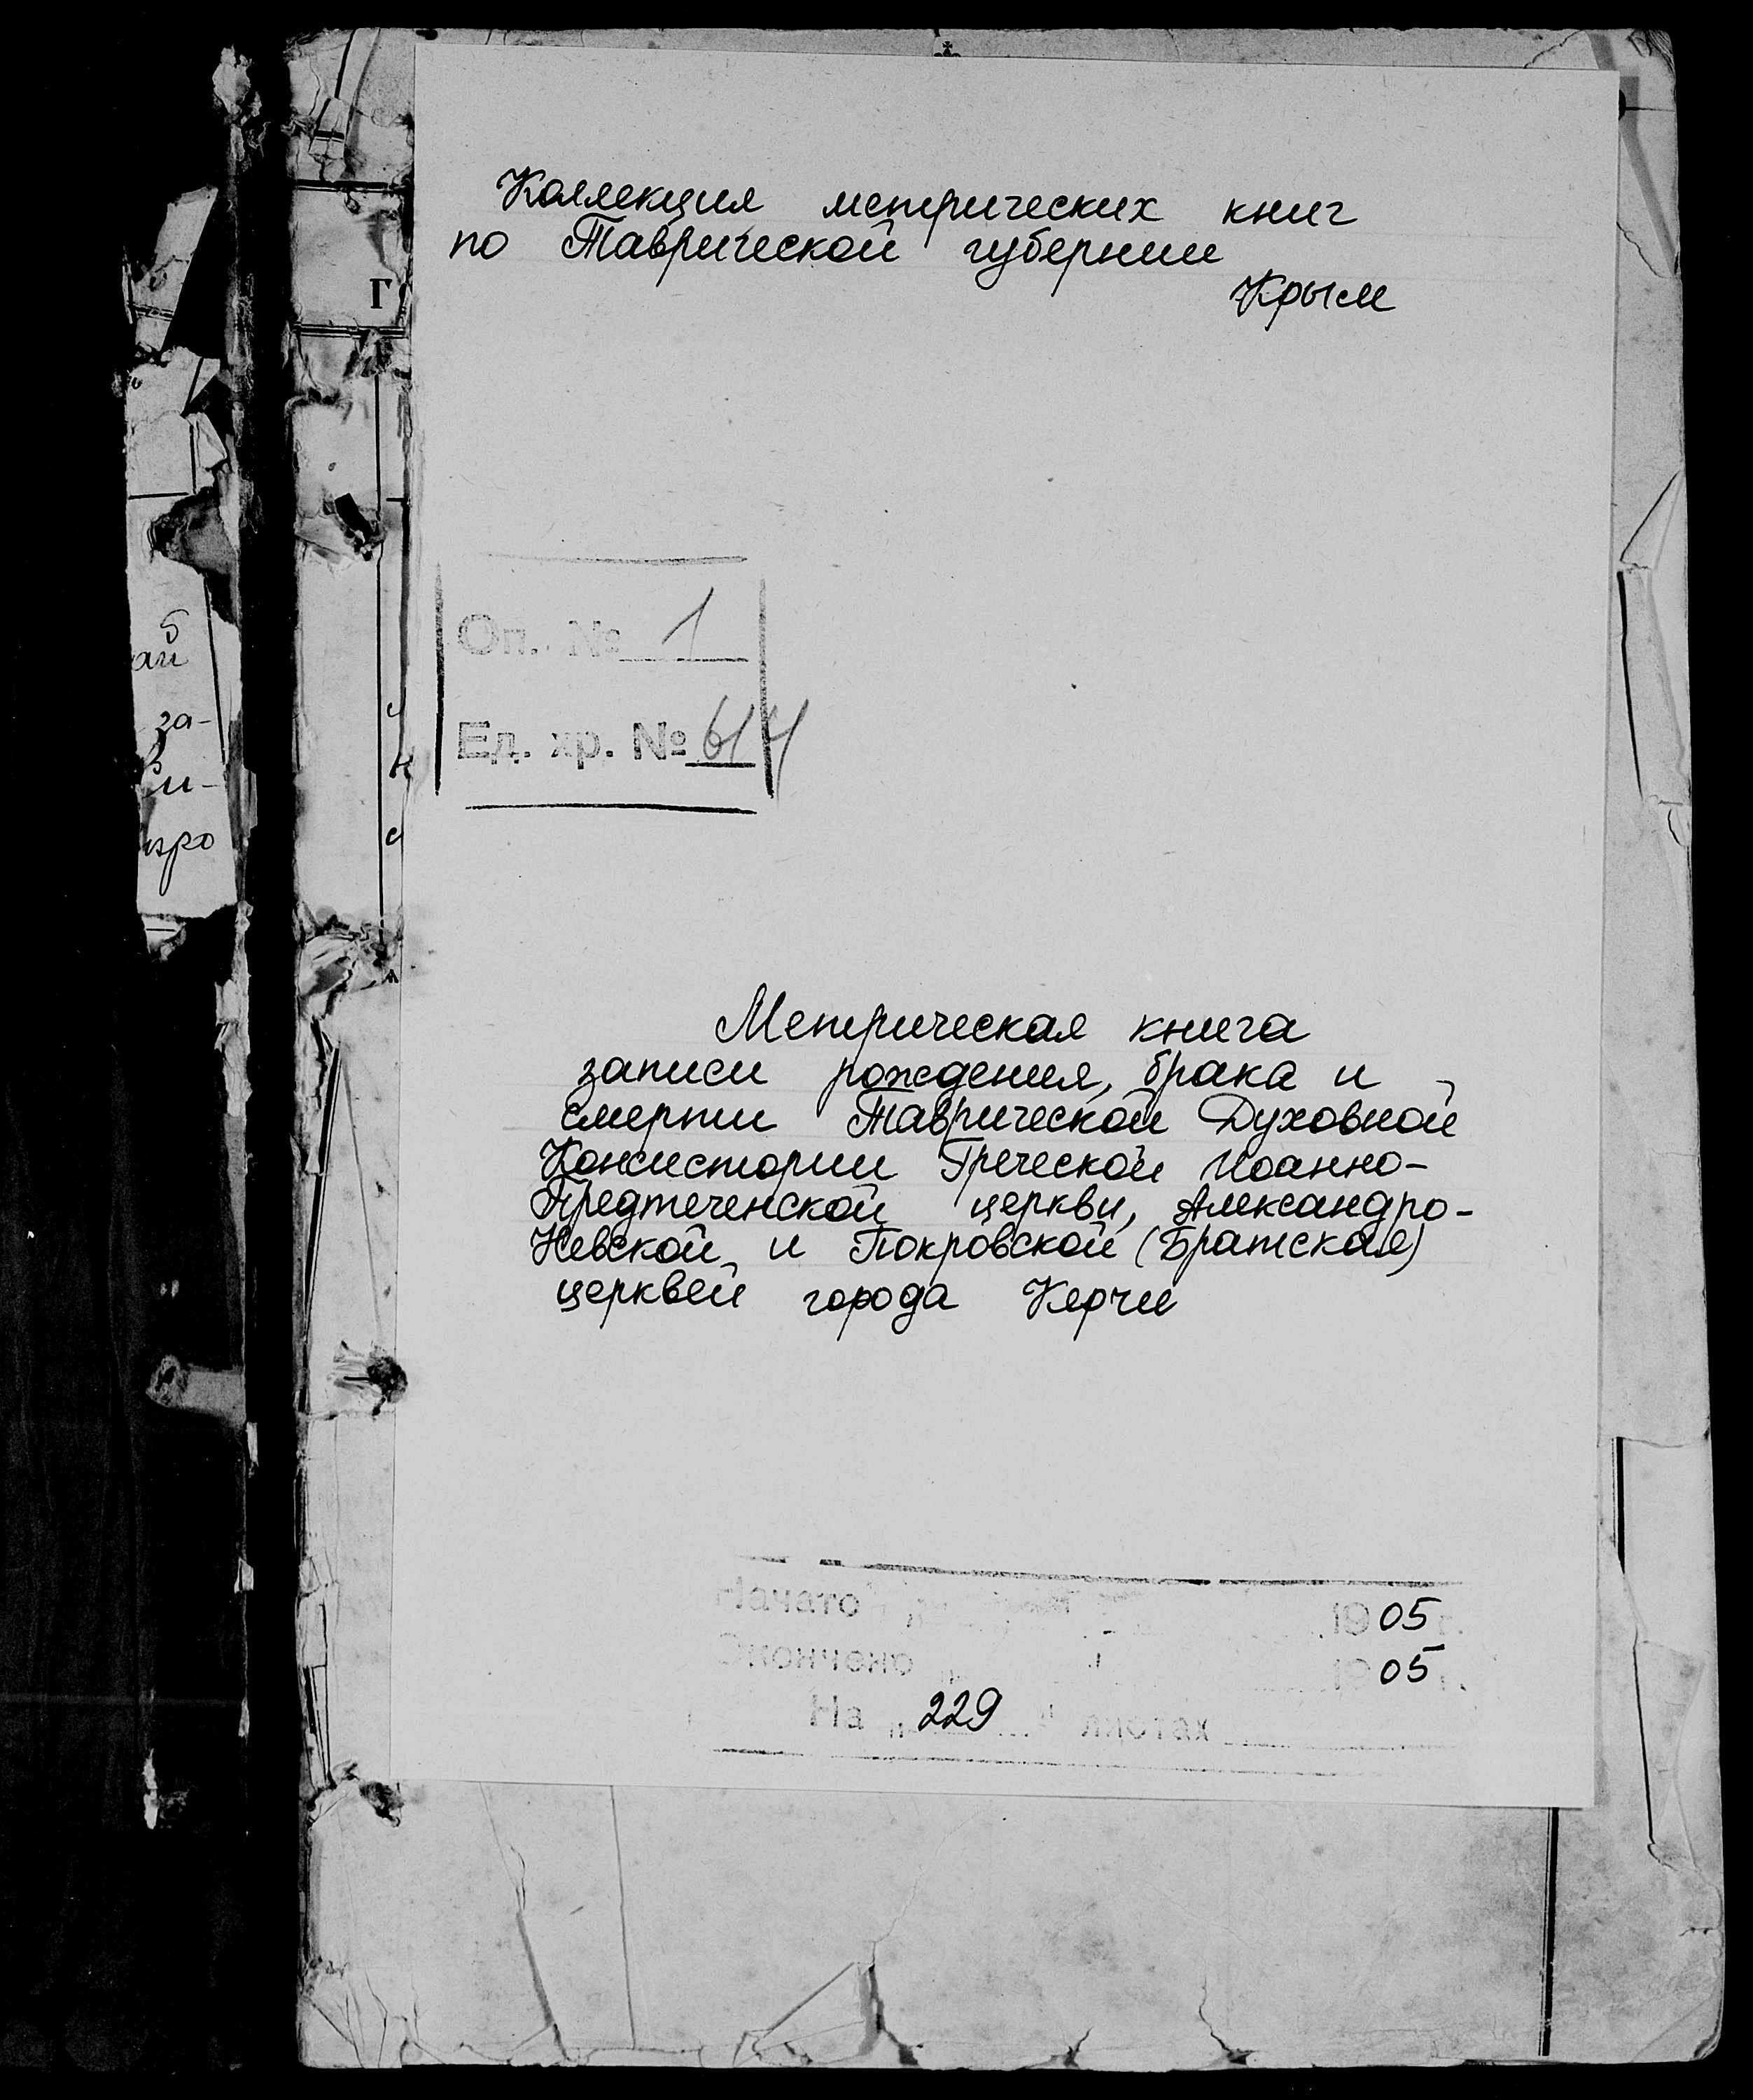 Коллекция метрических книг
по Таврической губернии
Крым
Г
Оп. № 1
Ед. хр. № 614
ай
за-
про
Метрическая книга
записи рождения, брака и
смерти Таврической Духовной
Консистории Греческой Иоанно-
Предтеченской церкви, Александро-
Невской и Покровской (Братская)
церквей города Керчи
Начато 1905 г.
Окончено 1905 г.
На 229 листах